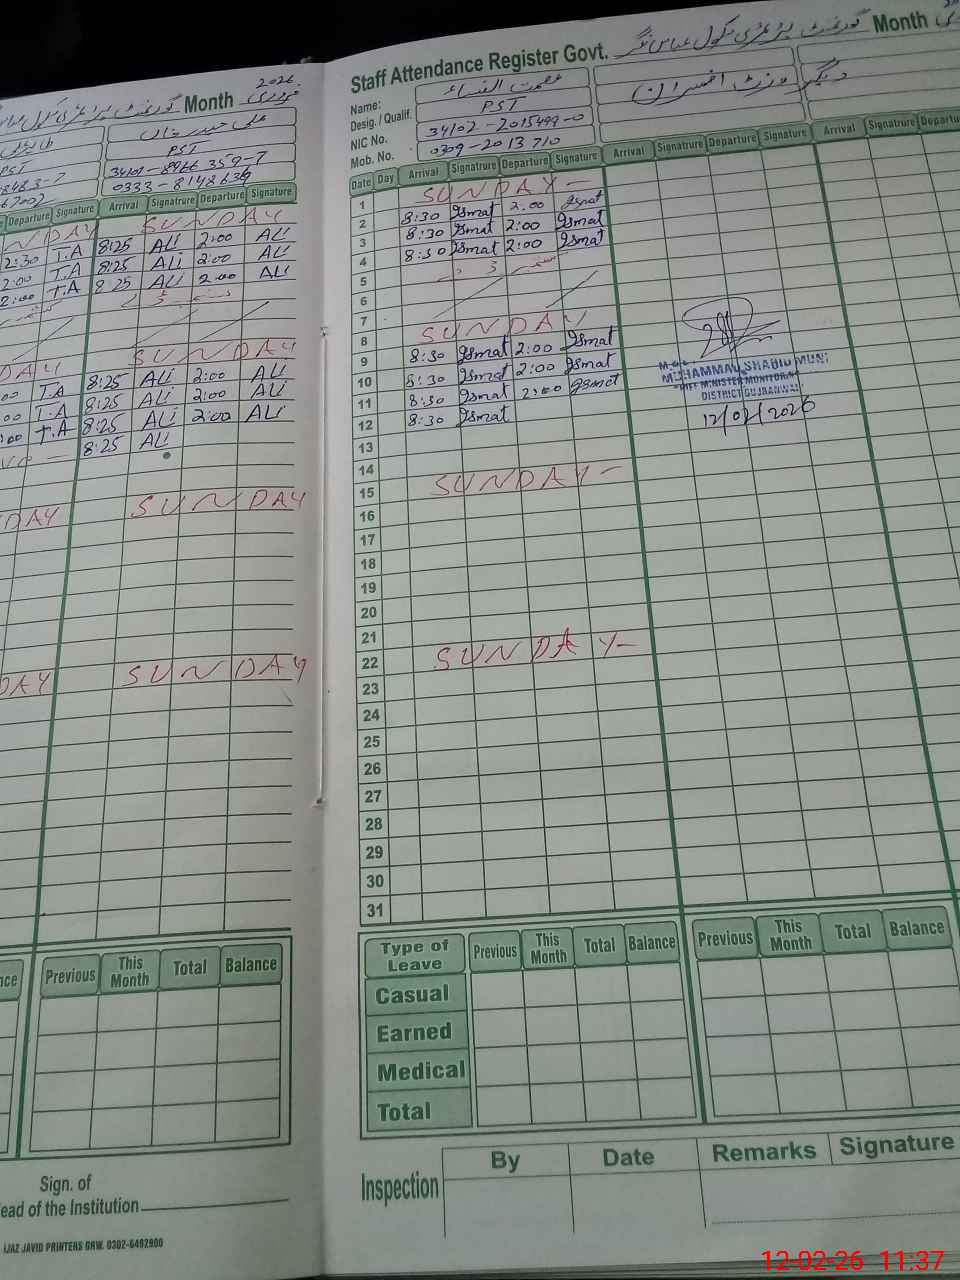 2026
Month فروری
علی حیدر خان
PST PST
34101-8966359-7
0333-8148636
Departure Signature Arrival Signature Departure Signature
SUNDAY
2:30 T.A 8:25 ALI 2:00 ALI
2:00 T.A 8:25 ALI 2:00 ALI
2:00 T.A 8:25 ALI 2:00 ALI
DAY SUNDAY
00 T.A 8:25 ALI 2:00 ALI
00 T.A 8:25 ALI 2:00 ALI
00 T.A 8:25 ALI 2:00 ALI
8:25 ALI
DAY SUNDAY
DAY SUNDAY
nce Previous This Month Total Balance
Sign. of
ead of the Institution
IJAZ JAVID PRINTERS GRW. 0302-6492900
Staff Attendance Register Govt. گورنمنٹ پرائمری سکول عباس نگر Month
Name: عصمت النساء
دیگر وزٹ افسران
Desig. / Qualif. PST
NIC No. 34102-2015499-0
Mob. No. 0309-2013710
Date Day Arrival Signatrure Departure Signature Arrival Signatrure Departure Signature Arrival Signatrure Departu
1 SUNDAY-
2 8:30 Ismat 2:00 Ismat
3 8:30 Ismat 2:00 Ismat
4 8:30 Ismat 2:00 Ismat
5
6
7
8 SUNDAY
9 8:30 Ismat 2:00 Ismat
10 8:30 Ismat 2:00 Ismat
11 8:30 Ismat 2:00 Ismat
12 8:30 Ismat
MUHAMMAD SHABIO MUNI
CHIEF MINISTER MONITORIN
DISTRICT GUJRANWAL
12/02/2026
13
14
15 SUNDAY-
16
17
18
19
20
21
22 SUNDAY-
23
24
25
26
27
28
29
30
31
Type of Leave Previous This Month Total Balance Previous This Month Total Balance
Casual
Earned
Medical
Total
Inspection By Date Remarks Signature
12-02-26 11:37